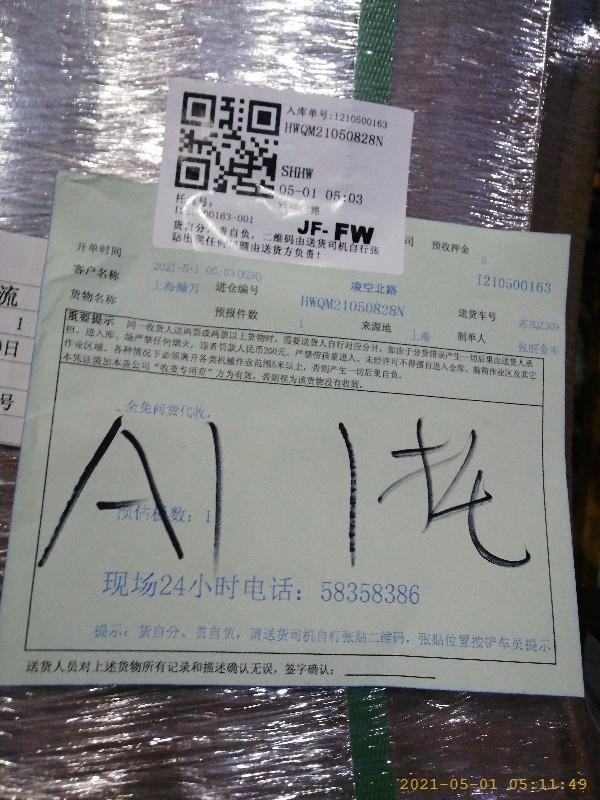 入库单号:I210500163
HWQM21050828N
SHHW
05-01 05:03
JF-FW
货自分、责自负,二维码由送货司机自行张
贴出现任何问题由送货方负责!
预收押金 0
开单时间 2021-5-1 05:03(KDR)
凌空北路
I210500163
客户名称 上海瀚万
进仓编号 HWQM21050828N
送货车号
货物名称
预报件数 1
来源地 上海
制单人
重要提示 同一收货人送两票或两票以上货物时,需要送货人自行对应分开,如由于分货错误产生一切后果由送货人承
担,进入库、场严禁任何烟火,违者罚款人民币200元,严禁偕孩童进入,未经许可不得擅自进入仓库、装箱作业区及其它
作业区域。各种情况下必须离开各类机械作业范围5米以上,否则产生一切后果自负。
本凭证需加本器公司“收货专用章”方为有效,否则视为该货物没有收到。
全免问货代收,
A1 1托
预估板数:1
现场24小时电话:58358386
提示:货自分、责自负,请送货司机自行张贴二维码,张贴位置按铲车员提示
送货人员对上述货物所有记录和描述确认无误,签字确认:
流
1
日
号
2021-05-01 05:11:49